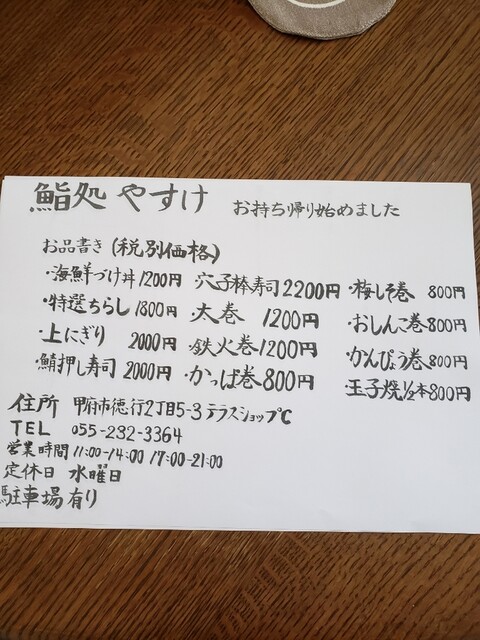 鮨処 やすけ お持ち帰り始めました
お品書き (税別価格)
・海鮮づけ丼 1200円 穴子棒寿司 2200円 ・梅しそ巻 800円
・特選ちらし 1800円 ・太巻 1200円 ・おしんこ巻 800円
・上にぎり 2000円 ・鉄火巻 1200円 ・かんぴょう巻 800円
・鯖押し寿司 2000円 ・かっぱ巻 800円 ・玉子焼 1/2本 800円
住所 甲府市徳行2丁目5-3 テラスショップC
TEL 055-232-3364
営業時間 11:00-14:00 17:00-21:00
定休日 水曜日
駐車場 有り